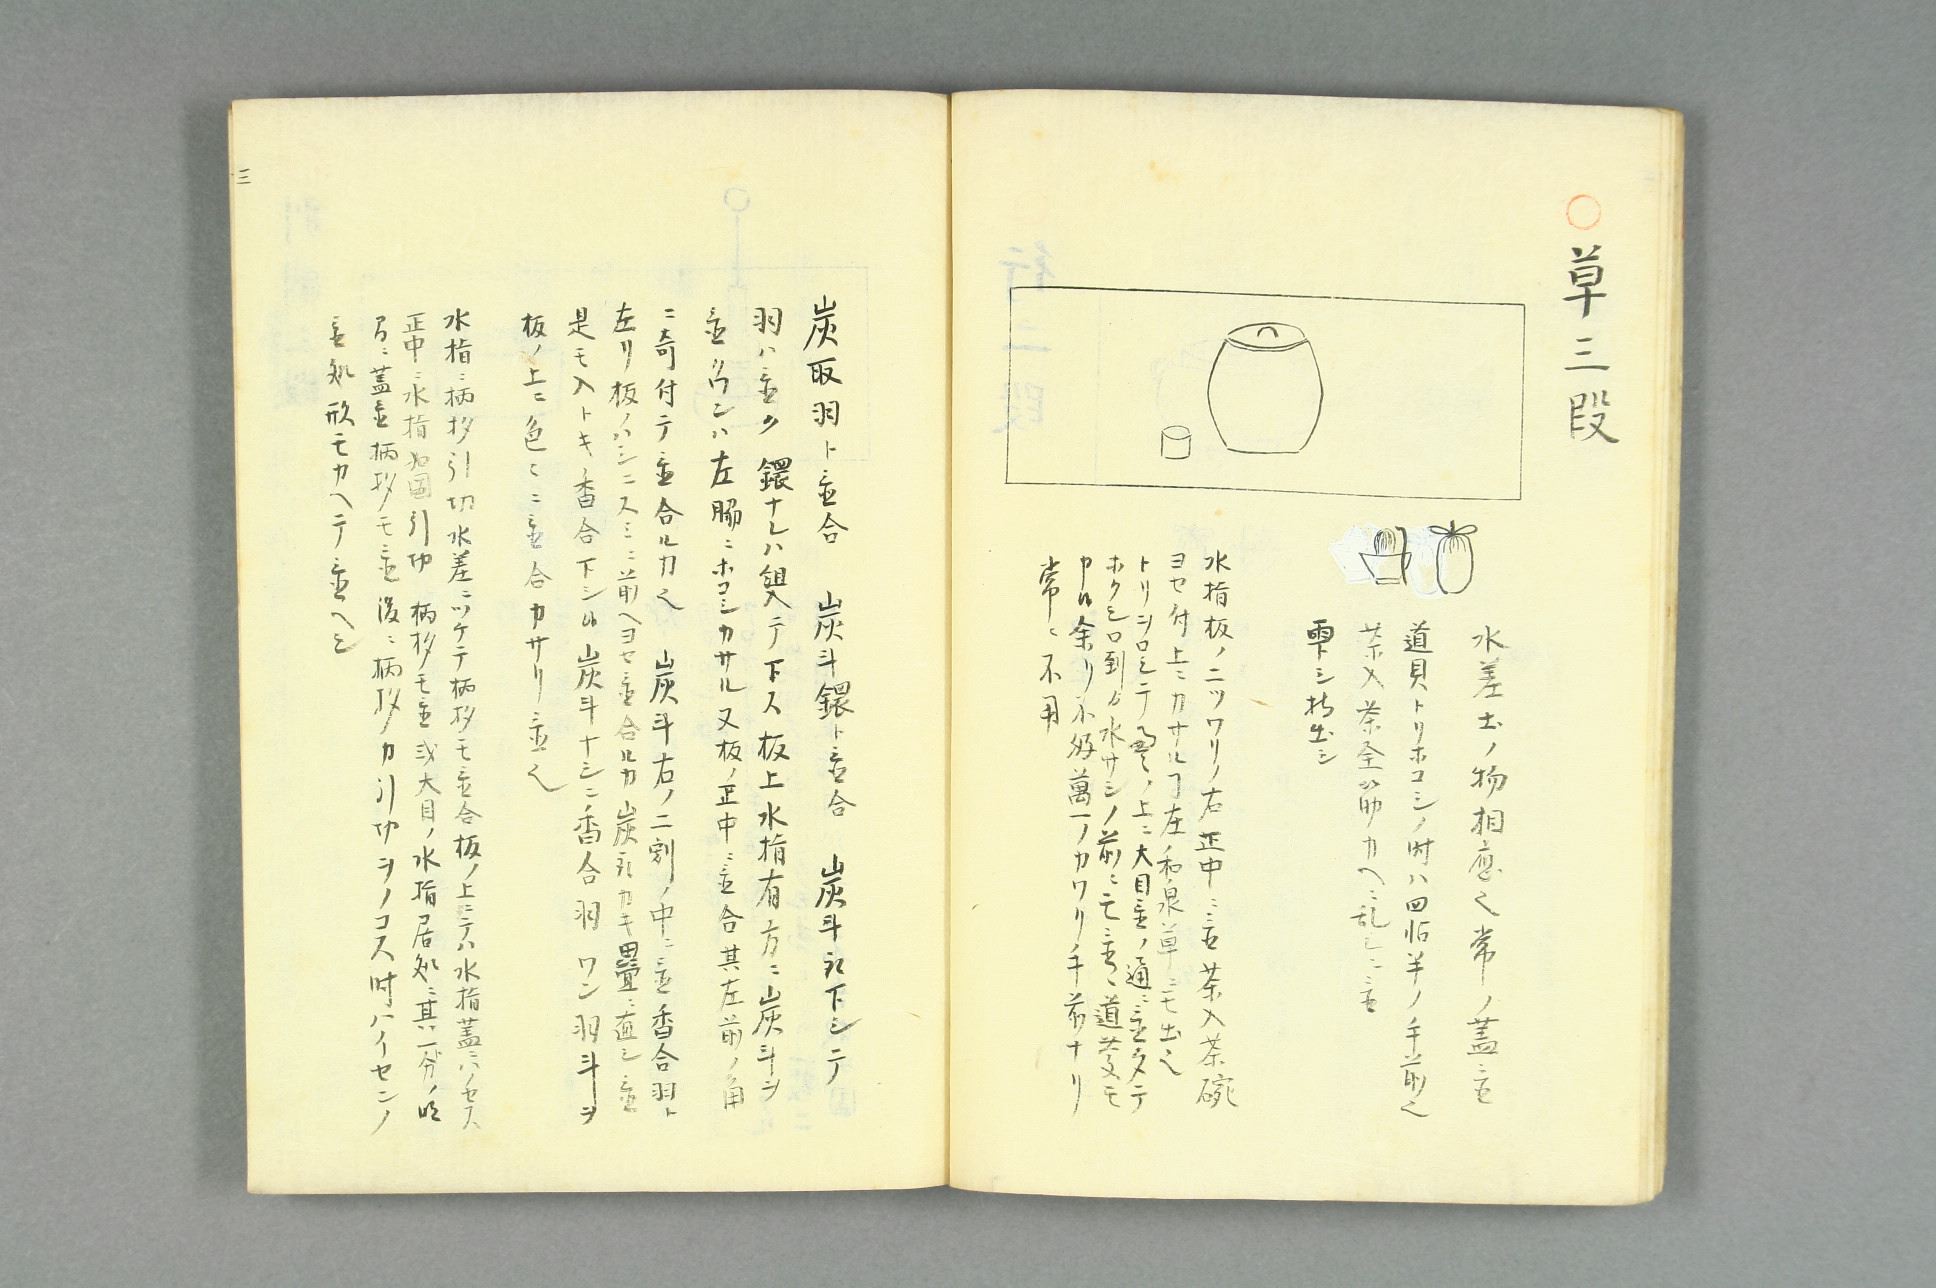 草三段
水差土ノ物相應ヘ常ノ蓋ニ置
道具トリホコシノ時ハ四帖半ノ手前ヘ
茶入茶筌筋カヘニ乱シニ置
雫下シ持出シ
水指板ノ二ツワリノ右正中ニ置茶入茶碗
ヨセ付上ニカサルヿ左和泉草ニモ出ヘ
トリヲロシテ畳ノ上ニ大目置ノ通ニ置タテ
ホクシロ到ゟ水サシノ前ニモ置ヘ道具モ
カル余リ不好萬一ノカワリ手前ナリ
常ニ不用
炭取羽ト置合 炭斗鐶ト置合 炭斗計下シテ
羽ハ置ク鐶ナレハ組入テ下ス板上水指有方ニ炭斗ヲ
置クヘシハ左脇ニホコシカサル又板ノ正中ニ置合其左前ノ角
ニ寄付テ置合ルカヘ 炭斗右ノ二割ノ中ニ置香合羽ト
左リ板ノハシニスミニ前ヘヨセ置合ルカ炭計カキ疊ニ直シ置
是モ入トキ香合下シル炭斗ナシニ香合羽ワン羽斗ヲ
板ノ上ニ色〻ニ置合カサリ置ヘ
水指ニ柄杓引切水差ニツケテ柄杓モ置合板ノ上ニテハ水指蓋ニハノセス
正中ニ水指如圖引切 柄杓モ置或大目ノ水指居処ニ其一分ノ
居ニ蓋置柄杓モ置後ニ柄杓カ引切ヲノコス時ハイセンノ
置処形モカヘテ置ヘシ
三